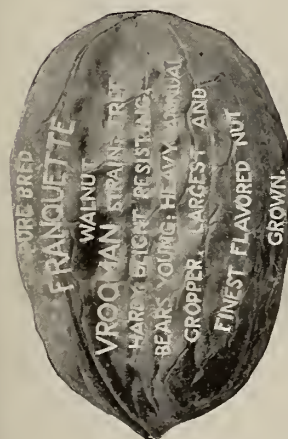 PURE BRED
FRANQUETTE
WALNUT
VROOMAN STRAIN. TREE
HARDY; BLIGHT RESISTING;
BEARS YOUNG; HEAVY ANNUAL
CROPPER, LARGEST AND
FINEST FLAVORED NUT
GROWN.